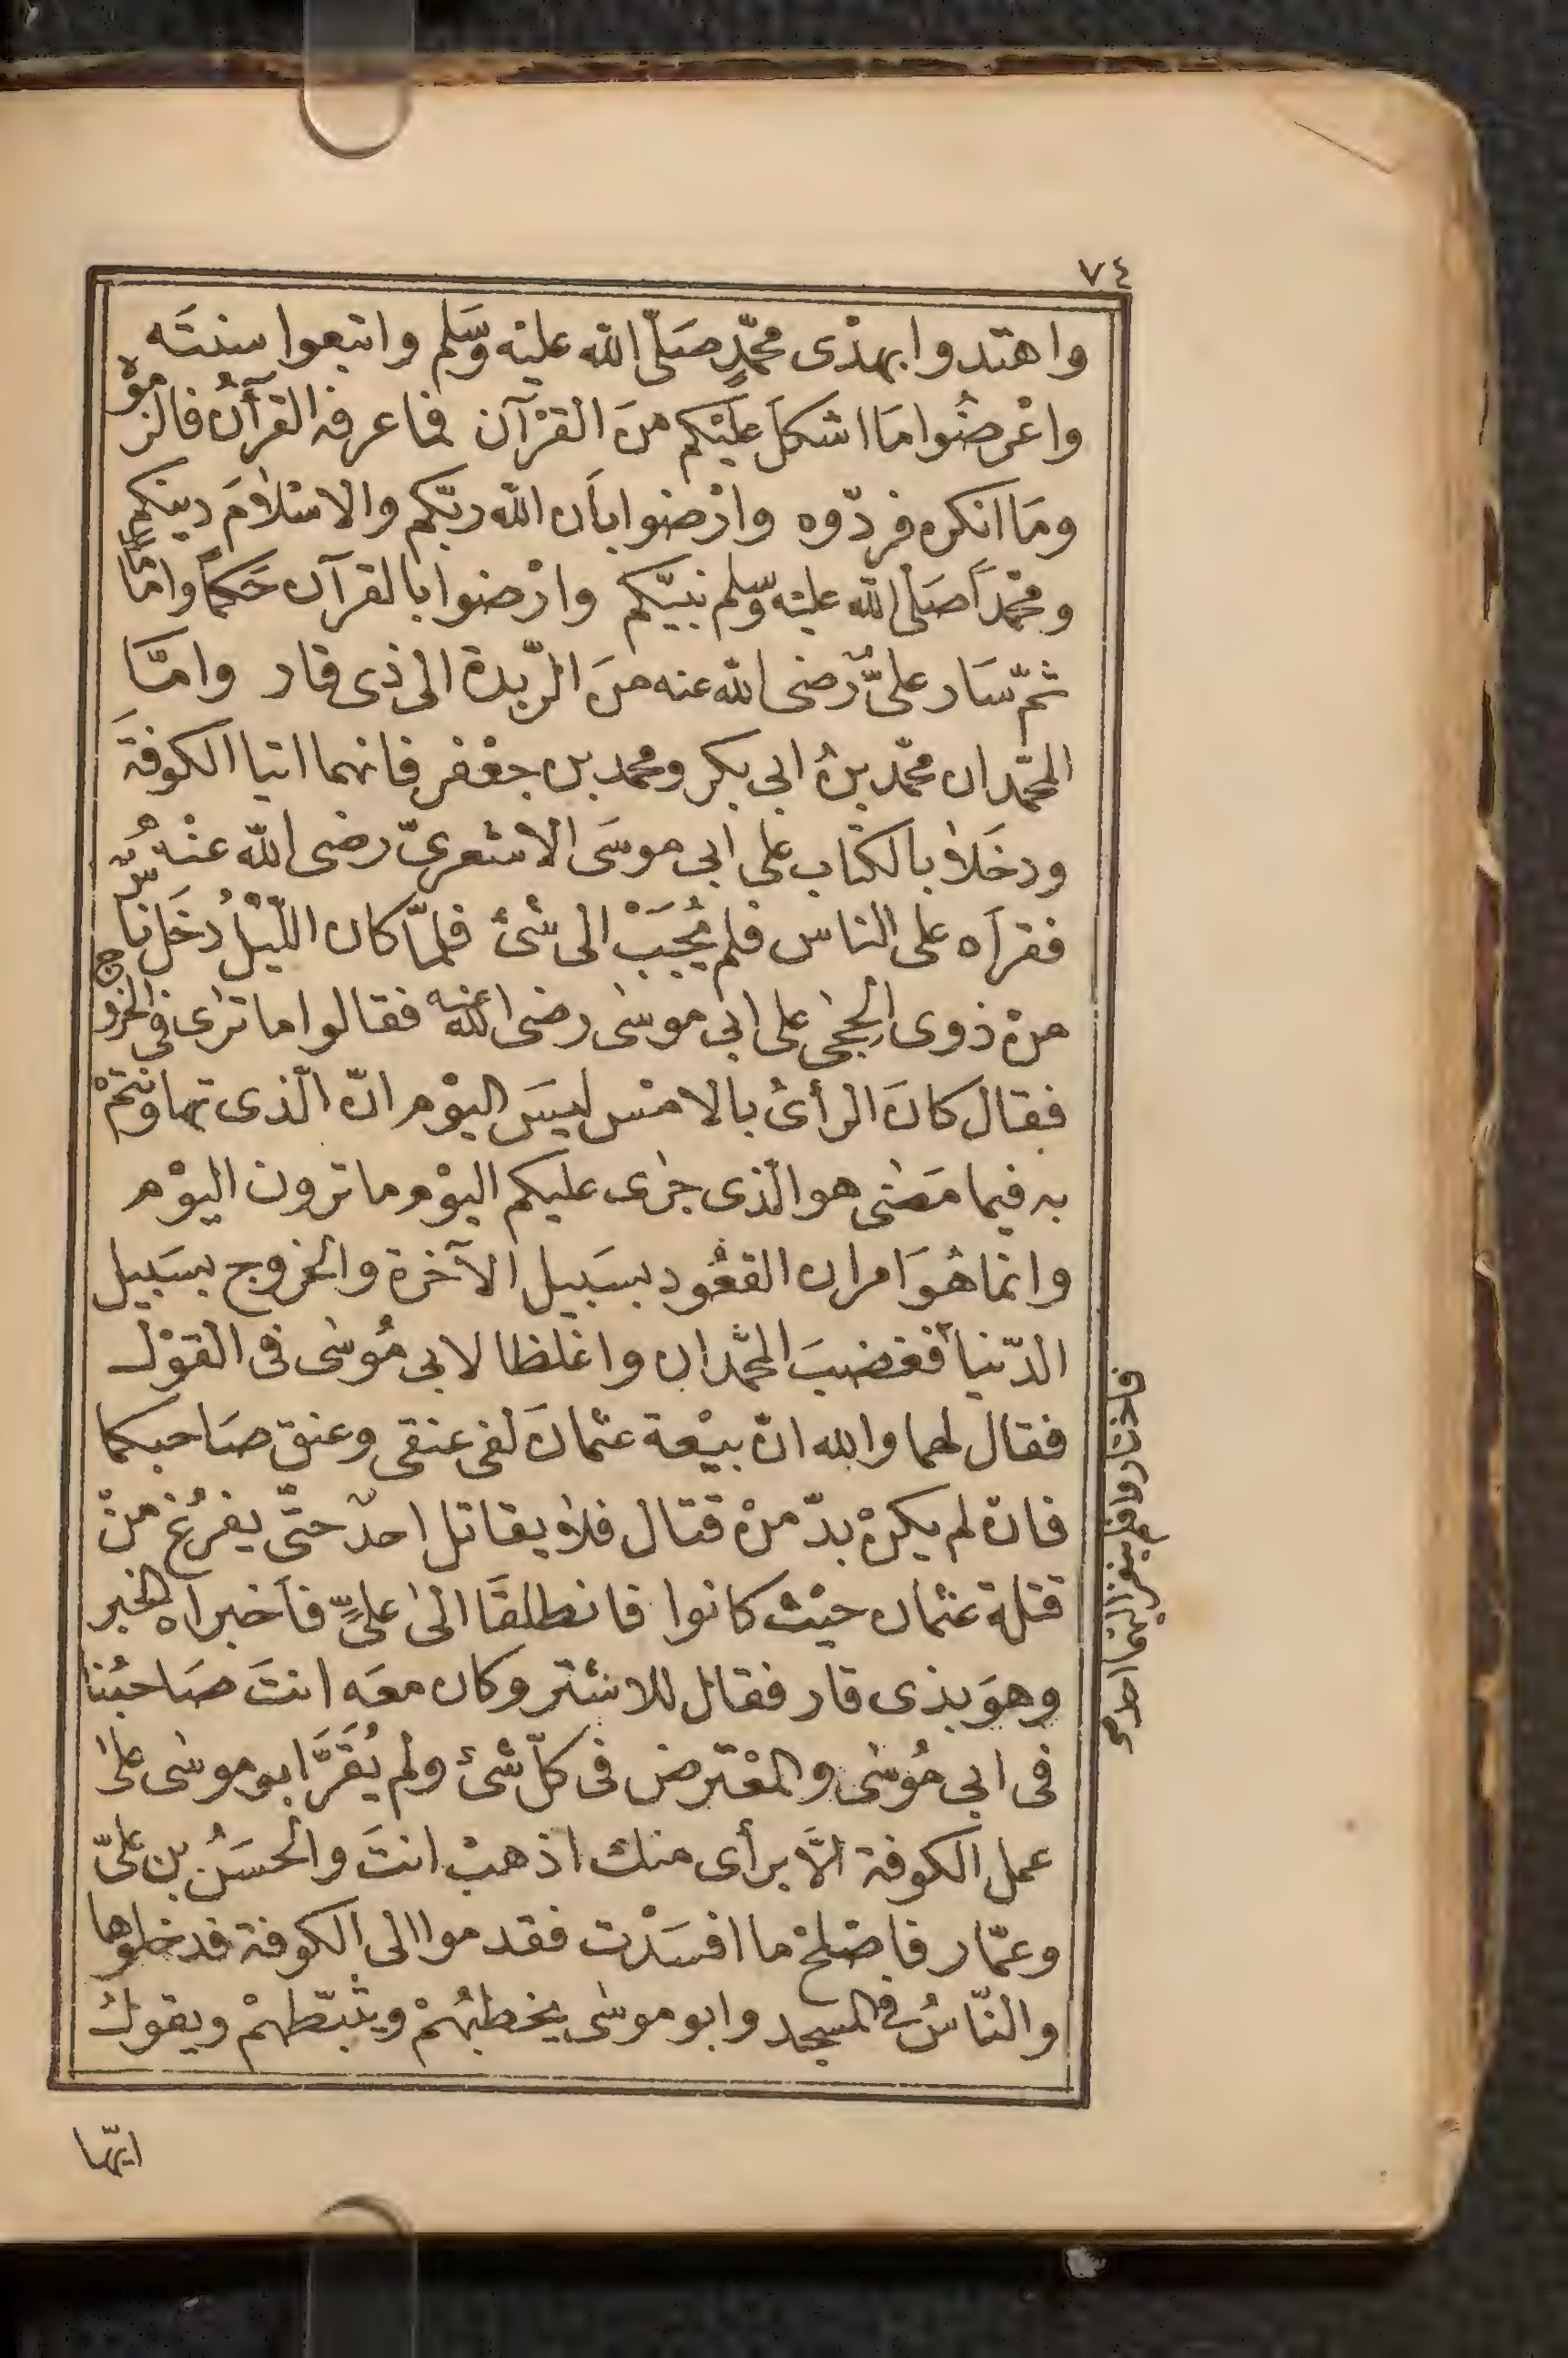 ٧٤
واهتدوا بهذى محمّدٍ صَلّى الله عليْه وسَلم واتبعوا سنتَه
واعْرضُوا مَا اشكلَ عليْكم منَ القرْآن فما عرفه القرآنُ فالزموْه
ومَا انكره فردّوه وارْضوا بأن الله ربّكم والاسْلامَ دينكم
ومحمّداً صَلى الله عليْه وسّلم نبيّكم وارْضوا بالقرآن حَكماً واماماً
ثمّ سَار علىٌّ رضى الله عنه منَ الرّبدة الى ذى قار وامّا
المحمّدان محمّد بنُ ابى بكر ومحمد بن جعْفر فانهما اتيا الكوفةَ
ودخَلا بالكتاب على ابى موسَى الاشعرىّ رضى الله عنْهُ
فقرآه على الناس فلم يُجَبْ الى شئ فلمّا كان اللّيْلُ دخَل ناسٌ
منْ ذوى الحِجى على ابى موسٰى رضى الله عنه فقالوا ما ترٰى فى الخروج
فقال كانَ الرأىُ بالامْس ليسَ اليوْم انّ الّذى تهاونتمْ
به فيما مَضٰى هو الّذى جرٰى عليكم اليوْم ما ترون اليوْم
وانما هُوَ امران القعُود بسَبيل الآخرة والخروج بسَبيل
الدّنيا فغضبَ المحمّدان واغْلظا لابى مُوسٰى فى القوْل
فقال لهما والله انّ بيْعة عثمانَ لفى عنقى وعنق صَاحبكما
فانْ لم يكنْ بدّ منْ قتال فلا يقاتل احدٌ حتّى يفرُغ منْ
قتلة عثمان حيْث كانوا فانطلقَا الىٰ علىٍّ فأخبراه الخبر
وهوَ بذى قار فقال للاشتر وكان معَه انتَ صَاحبُنا
فى ابى مُوسٰى والمعْترض فى كلّ شئ ولم يُقَرَّ ابو موسٰى علىٰ
عمل الكوفة الّا برأى منك اذهبْ انتَ والحسَنُ بن علىّ
وعمّار فاصْلحْ ما افسَدْت فقدموا الى الكوفة فدخلوها
والنّاسُ فى المسجد وابو موسٰى يخطبُهمْ ويثبّطهمْ ويقول
ايّها